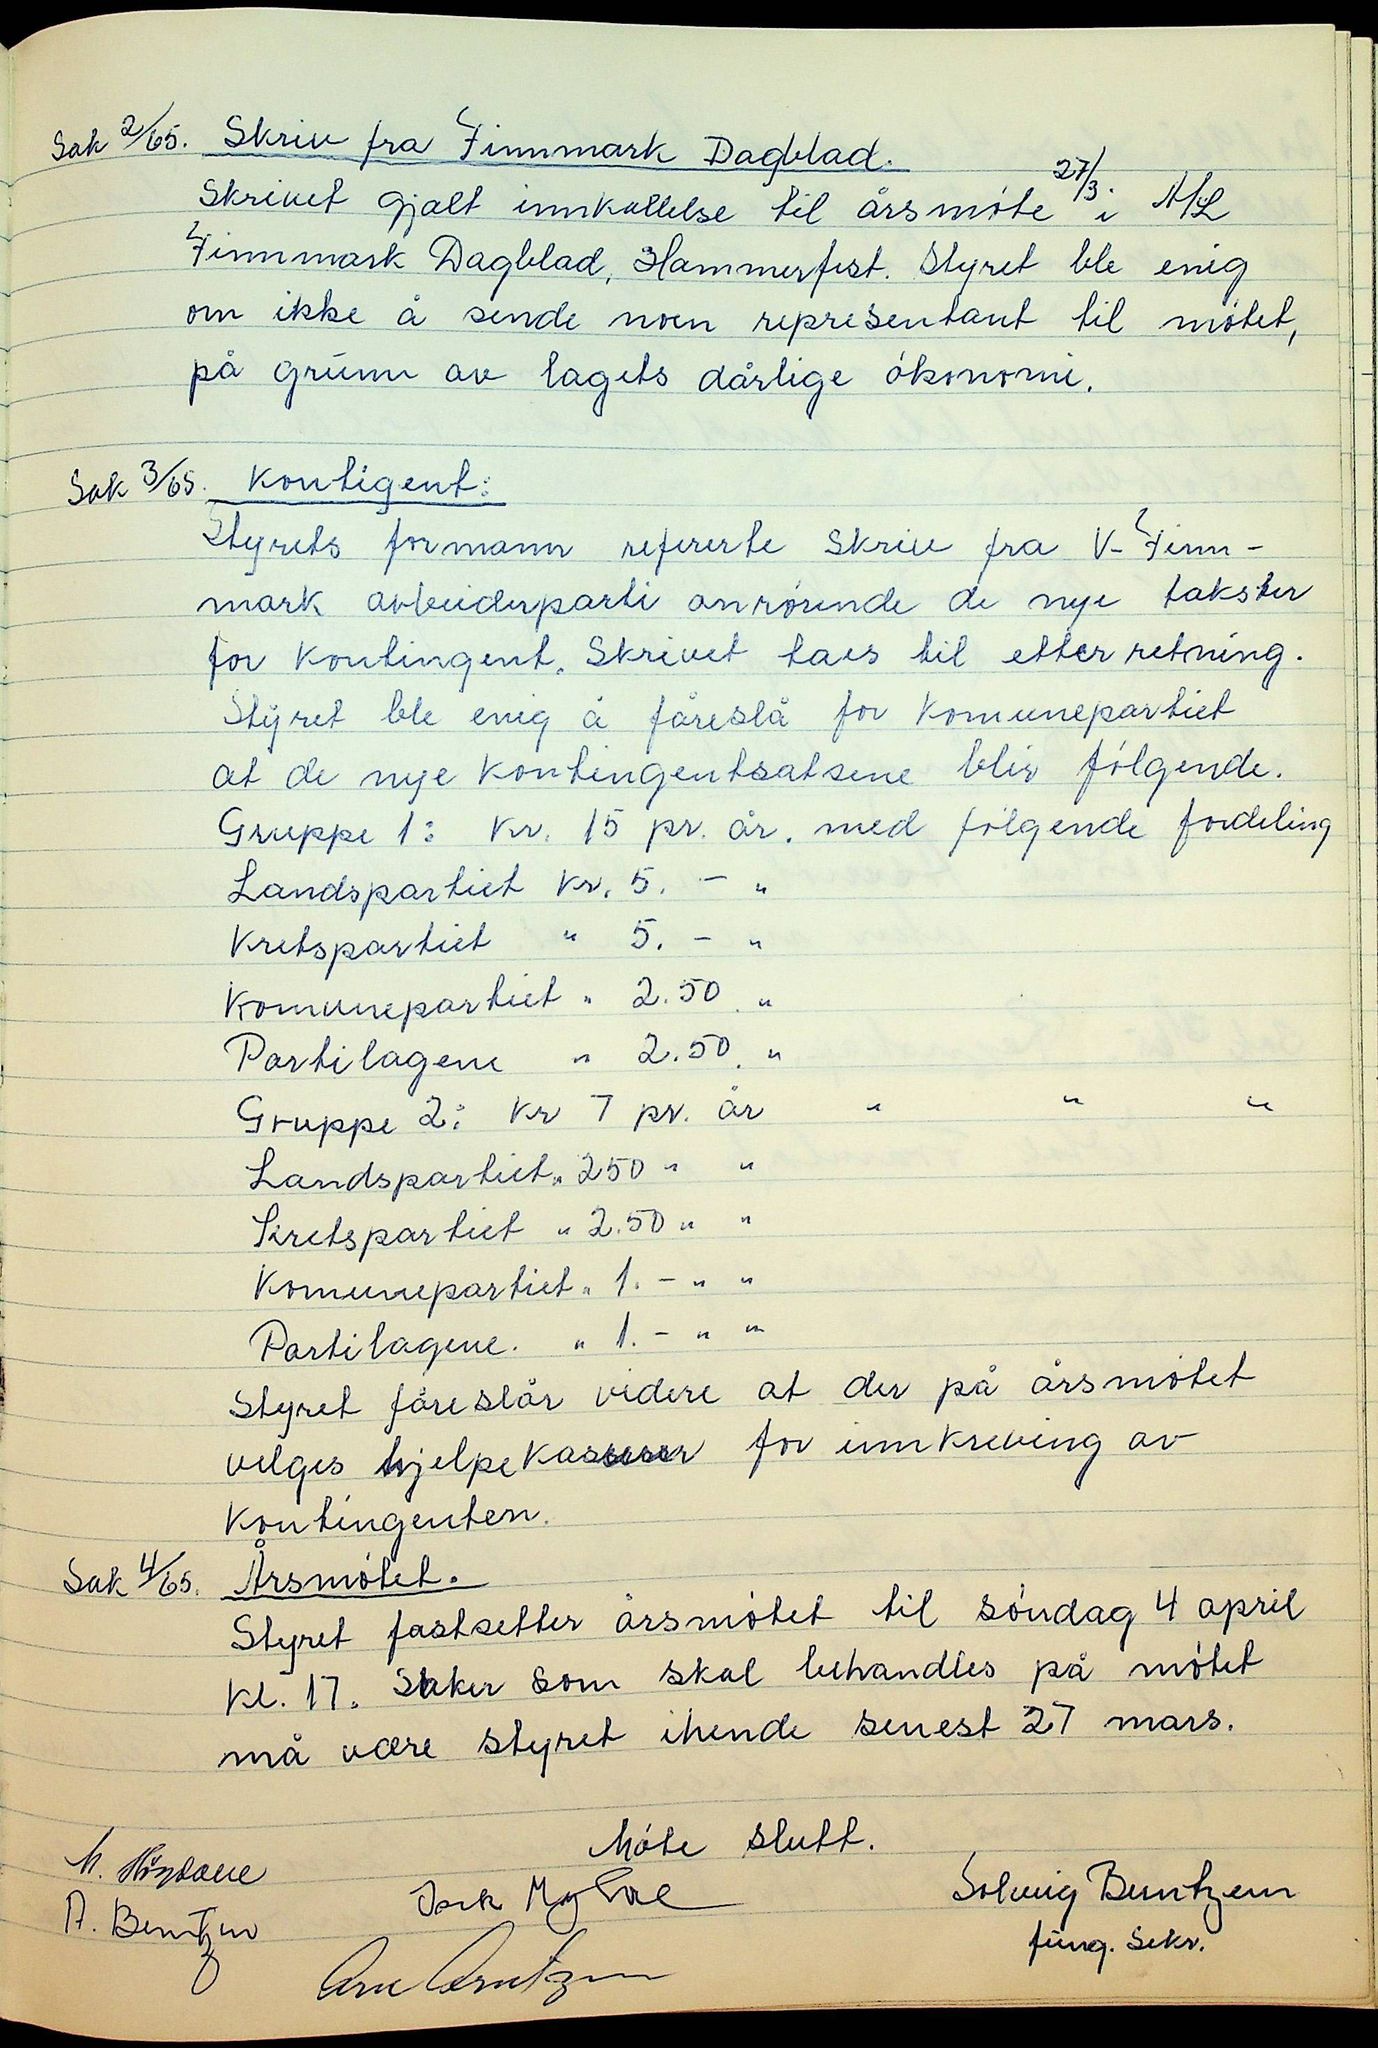 Sak 2/65. Skriv fra Finnmark Dagblad.
Skrivet gjalt innkallelse til årsmøte 27/3 i A/L
Finnmark Dagblad, Hammerfest. Styret ble enig
om ikke å sende noen representant til møtet,
på grunn av lagets dårlige økonomi.
Sak 3/65. Kontigent:
Styrets formann refererte skriv fra V-Finn-
mark arbeiderparti anrørende de nye takster
for kontingent. Skrivet taes til etterretning.
Styret ble enig å føreslå for Komunepartiet
at de nye kontingentsatsene blir følgende.
Gruppe 1: Kr. 15 pr. år. med følgende fordeling
Landspartiet Kr. 5. - "
Kretspartiet " 5. - "
Komunepartiet " 2.50 "
Partilagene " 2.50. "
Gruppe 2: Kr 7 pr. år " " "
Landspartiet " 250 " "
Kretspartiet " 2.50 " "
Komunepartiet " 1. - " "
Partilagene. " 1. - " "
Styret føreslår videre at der på årsmøtet
velges hjelpekasserer for innkreving av
Kontingenten.
Sak 4/65. Årsmøtet.
Styret fastsetter årsmøtet til søndag 4 april
kl. 17. Saker som skal behandles på møtet
må være styret ihende senest 27 mars.
Møte slutt.
M.
A. Bentzen
Solveig Bentzen
fung. sekr.